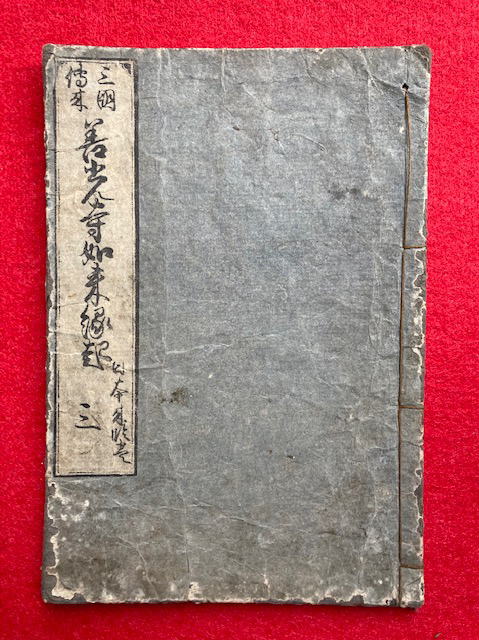 三國
傳来
善光寺如来縁起
三